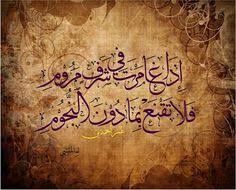 إِذَا غَامَرْتَ فِي شَرَفٍ مَرُومٍ
فَلَا تَقْنَعْ بِمَا دُونَ النُّجُومِ